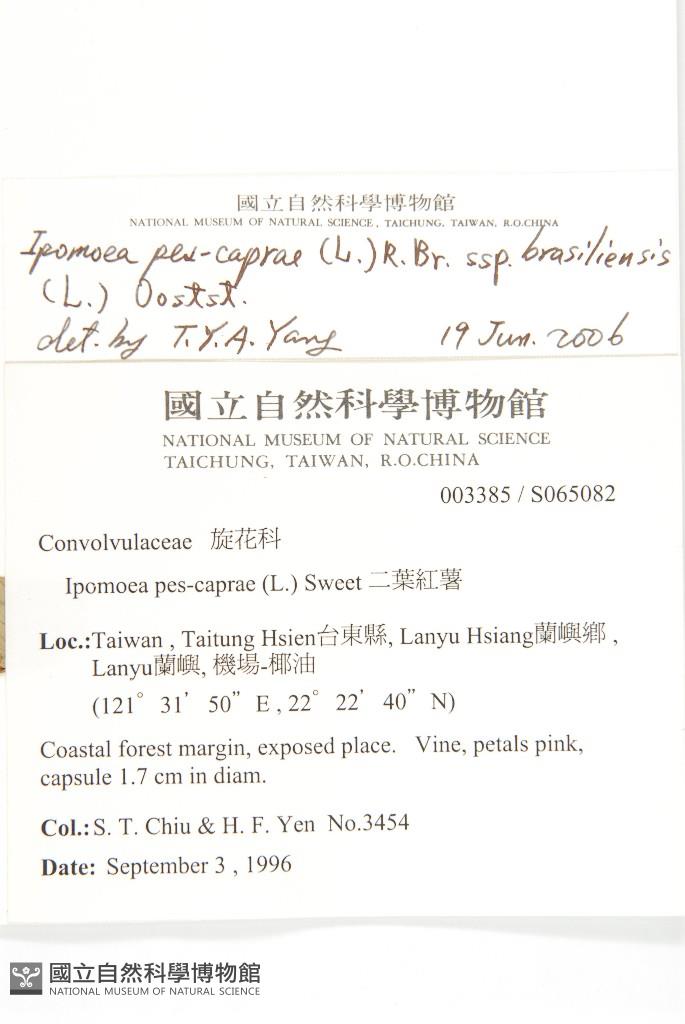 國立自然科學博物館
NATIONAL MUSEUM OF NATURAL SCIENCE, TAICHUNG, TAIWAN, R.O.CHINA
Ipomoea pes-caprae (L.) R.Br. ssp. brasiliensis
(L.) Oostst.
det. by T.Y.A. Yang 19 Jun. 2006
國立自然科學博物館
NATIONAL MUSEUM OF NATURAL SCIENCE
TAICHUNG, TAIWAN, R.O.CHINA
003385 / S065082
Convolvulaceae 旋花科
Ipomoea pes-caprae (L.) Sweet 二葉紅薯
Loc.:Taiwan , Taitung Hsien台東縣, Lanyu Hsiang蘭嶼鄉 ,
Lanyu蘭嶼, 機場-椰油
(121° 31’ 50” E , 22° 22’ 40” N)
Coastal forest margin, exposed place. Vine, petals pink,
capsule 1.7 cm in diam.
Col.: S. T. Chiu & H. F. Yen No.3454
Date: September 3 , 1996
國立自然科學博物館
NATIONAL MUSEUM OF NATURAL SCIENCE